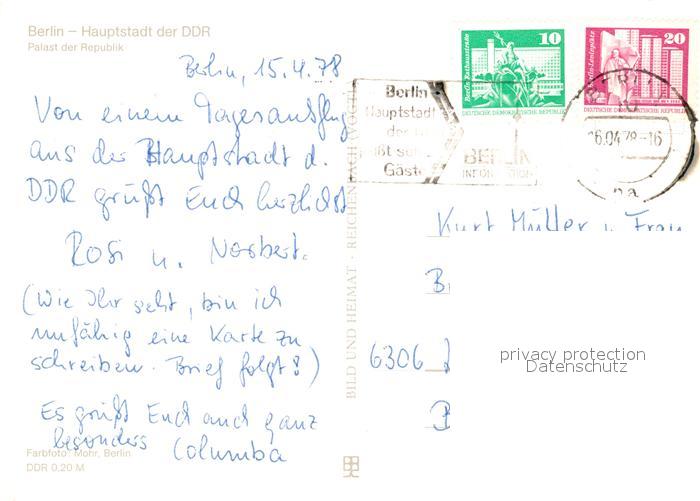 Berlin – Hauptstadt der DDR
Palast der Republik
Berlin, 15.4.78
Von einem Tagesausflug
aus der Hauptstadt d.
DDR grüßt Euch herzlichst
Rosi u. Norbert.
(Wie Ihr seht, bin ich
unfähig eine Karte zu
schreiben. Brief folgt!)
Es grüßt Euch auch ganz
besonders Columba
Farbfoto: Mohr, Berlin
DDR 0,20 M
BILD UND HEIMAT · REICHENBACH
10
Berlin, Rathausstraße
DEUTSCHE DEMOKRATISCHE REPUBLIK
20
Berlin-Leninplatz
DEUTSCHE DEMOKRATISCHE REPUBLIK
Berlin
Hauptstadt
der
Gäste
BERLIN
INFORMATION
6.04.78-16
na
Kurt Müller u. Frau
B
6306
privacy protection
Datenschutz